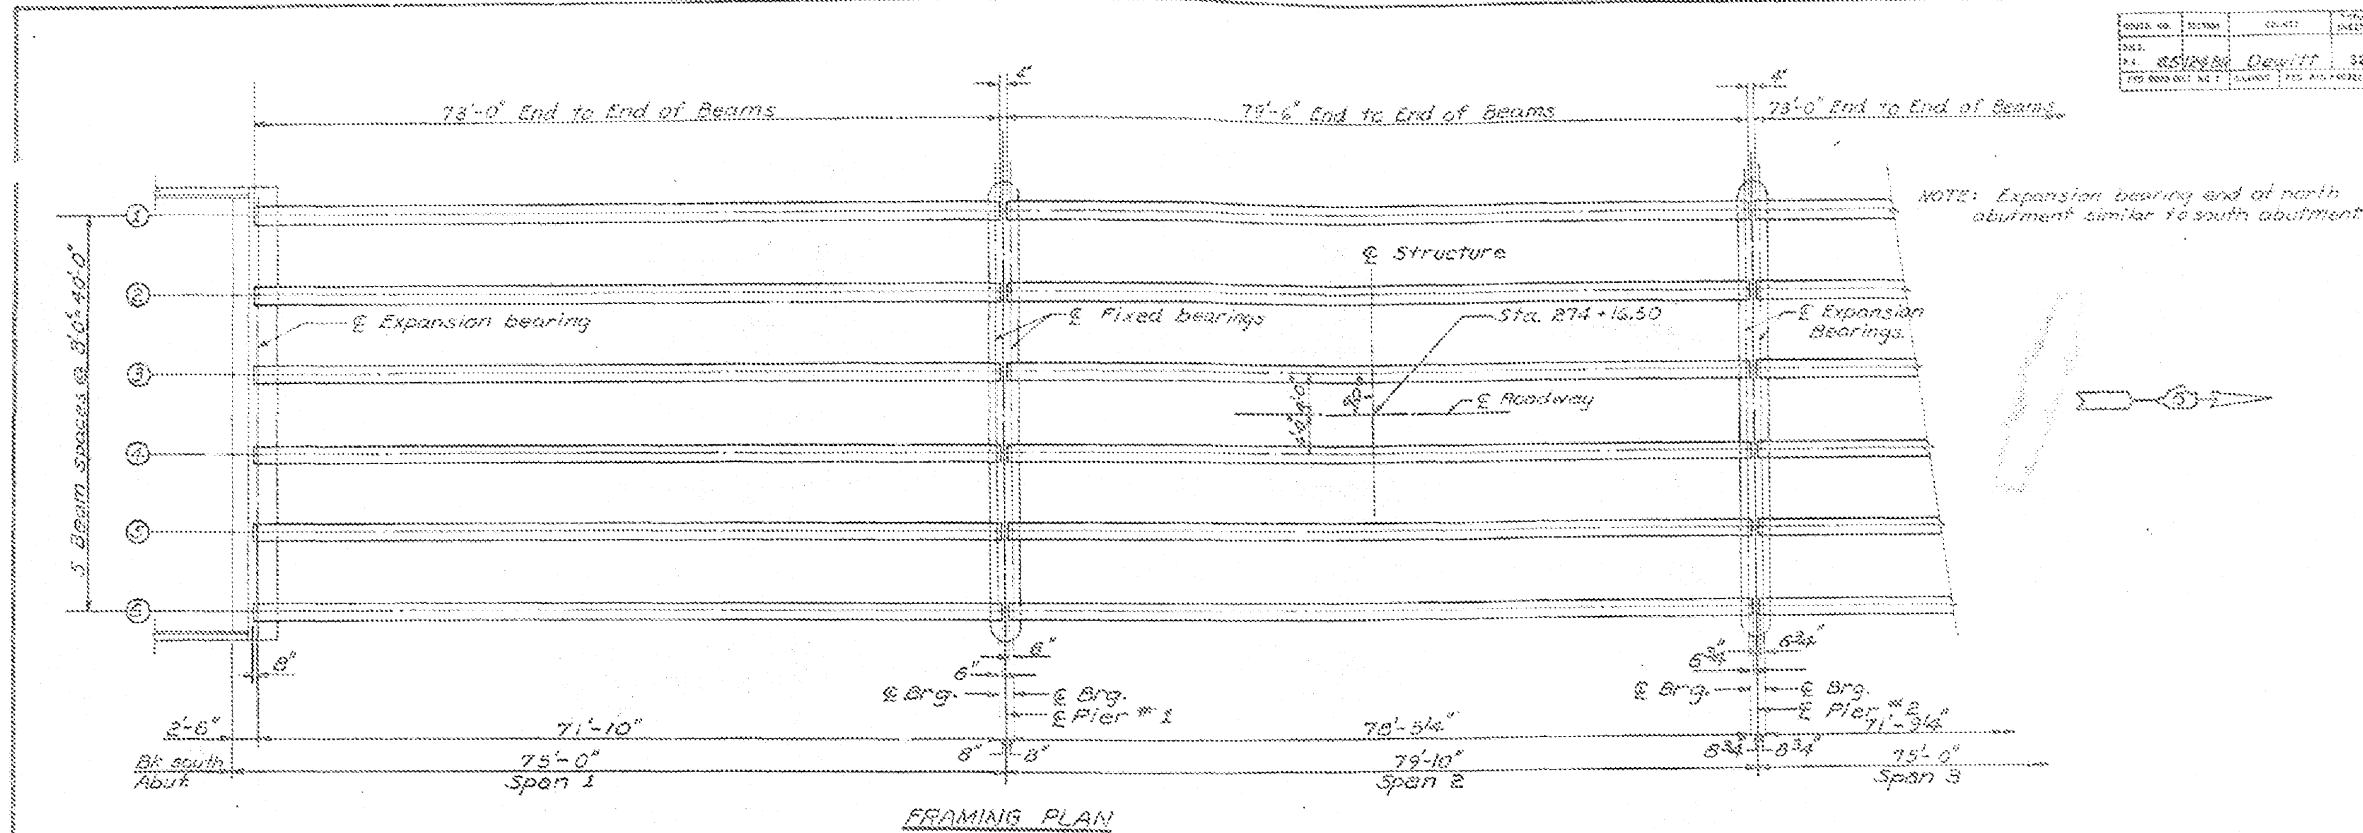 Dewitt
4"
4"
73'-0" End to End of Beams
79'-6" End to End of Beams
73'-0" End to End of Beams
NOTE: Expansion bearing end at north
abutment similar to south abutment
1
2
3
4
5
6
5 Beam spaces @ 8'-0"=40'-0"
℄ Structure
℄ Expansion bearing
℄ Fixed bearings
Sta. 274+16.50
℄ Expansion
Bearings.
90°
℄ Roadway
4'-0"
4'-0"
8"
6"
6"
6¾"
6¾"
℄ Brg.
℄ Brg.
℄ Pier #1
℄ Brg.
℄ Brg.
℄ Pier #2
2'-6"
71'-10"
78'-5¼"
71'-9¼"
8"
8"
8¾"
8¾"
Bk south
Abut.
75'-0"
Span 1
79'-10"
Span 2
75'-0"
Span 3
FRAMING PLAN